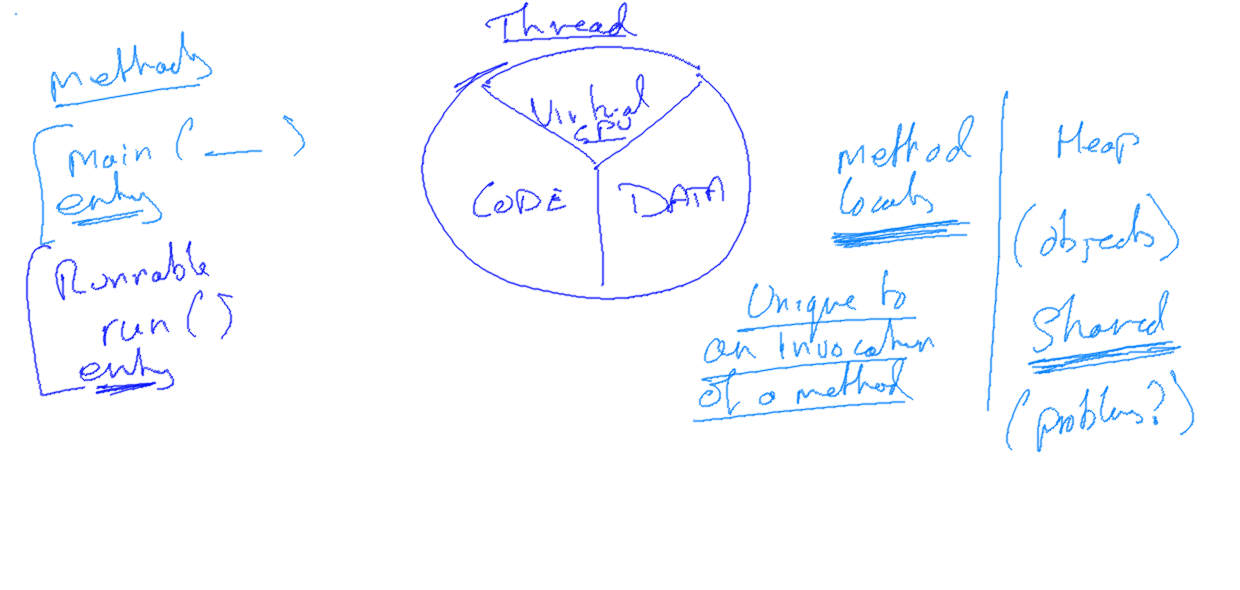 Thread
Methods
Main ( __ )
entry
Runnable
run ( )
entry
Virtual
CPU
CODE
DATA
Method
locals
Unique to
an invocation
of a method
Heap
(objects)
Shared
(problems?)